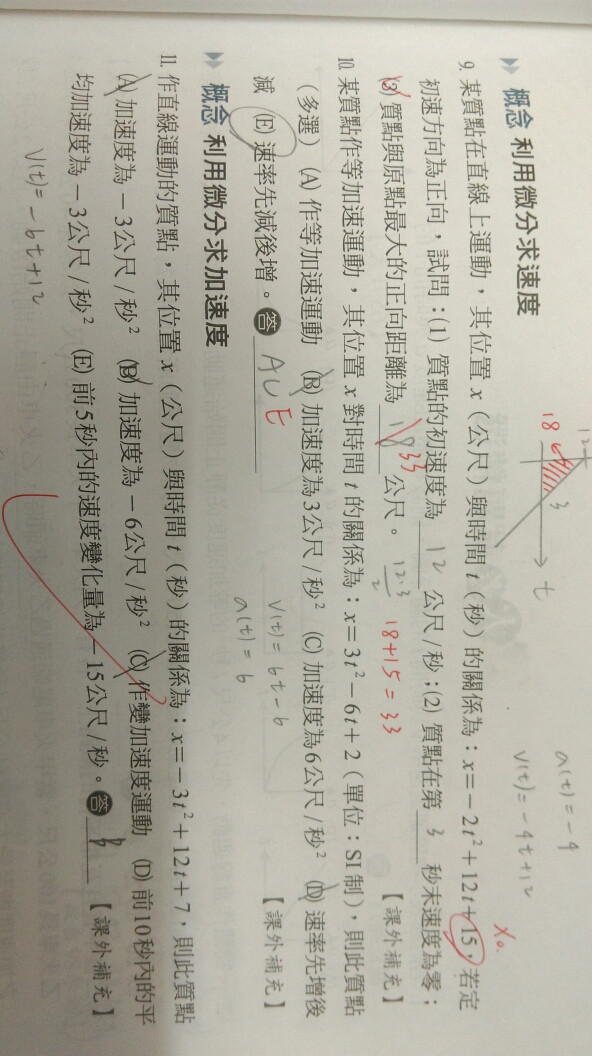 概念 利用微分求速度
9. 某質點在直線上運動，其位置 x（公尺）與時間 t（秒）的關係為：x=－2t²＋12t＋15，若定
初速方向為正向，試問：(1) 質點的初速度為 12 公尺/秒；(2) 質點在第 3 秒末速度為零；
(3) 質點與原點最大的正向距離為 18 33 公尺。
12·3
2
18+15=33
【課外補充】
a(t)=-4
v(t)=-4t+12
x₀
12
18
3
t
10. 某質點作等加速運動，其位置 x 對時間 t 的關係為：x=3t²－6t＋2（單位：SI 制），則此質點
（多選） (A) 作等加速運動 (B) 加速度為 3 公尺/秒² (C) 加速度為 6 公尺/秒² (D) 速率先增後
減 (E) 速率先減後增。答 A C E
【課外補充】
v(t)=6t-6
a(t)=6
概念 利用微分求加速度
11. 作直線運動的質點，其位置 x（公尺）與時間 t（秒）的關係為：x=－3t²＋12t＋7，則此質點
(A) 加速度為－3公尺/秒² (B) 加速度為－6公尺/秒² (C) 作變加速度運動 (D) 前10秒內的平
均加速度為－3公尺/秒² (E) 前5秒內的速度變化量為－15公尺/秒。答 B
【課外補充】
v(t)=-6t+12